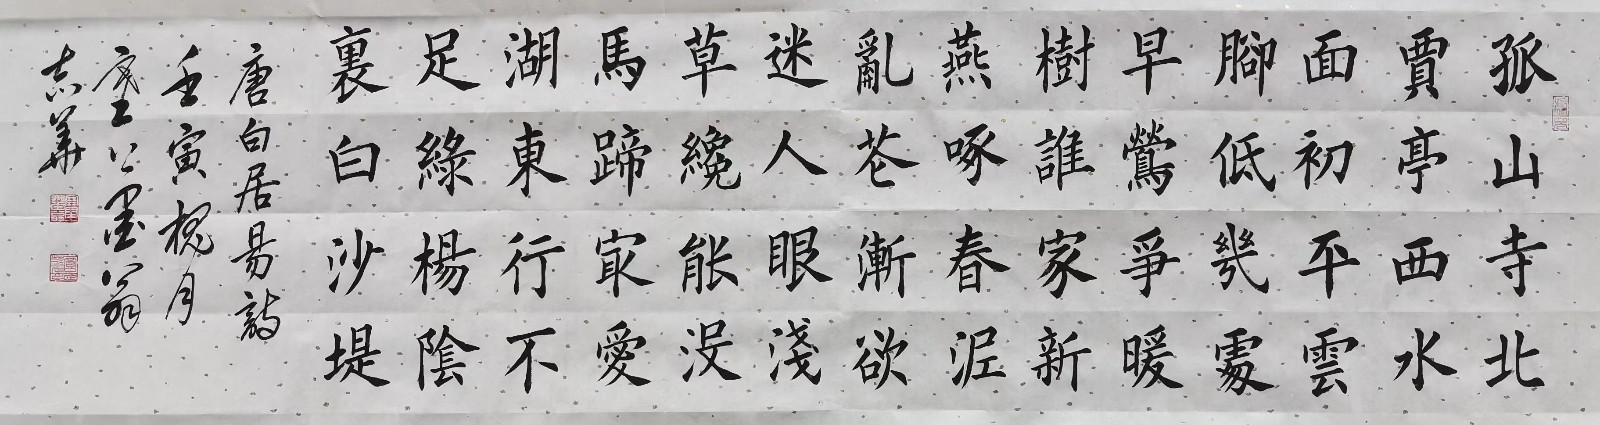 孤山寺北
賈亭西水
面初平雲
腳低幾處
早鶯爭暖
樹誰家新
燕啄春泥
亂花漸欲
迷人眼淺
草纔能沒
馬蹄冣愛
湖東行不
足綠楊陰
裏白沙堤
唐白居易詩
壬寅槐月
墨翁
志華